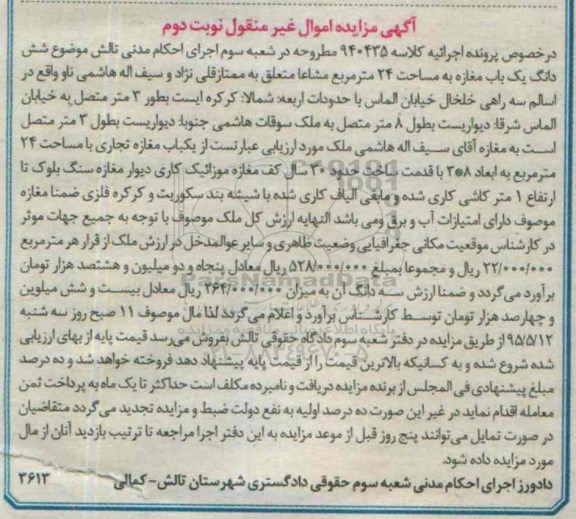 آگهی مزایده اموال غیر منقول نوبت دوم
درخصوص پرونده اجرائیه کلاسه ۹۴۰۴۳۵ مطروحه در شعبه سوم اجرای احکام مدنی تالش موضوع شش
دانگ یک باب مغازه به مساحت ۲۴ مترمربع مشاعا متعلق به ممتازقلی نژاد و سیف اله هاشمی ناو واقع در
اسالم سه راهی خلخال خیابان الماس با حدودات اربعه: شمالا: کرکره ایست بطور ۳ متر متصل به خیابان
الماس شرقا: دیواریست بطول ۸ متر متصل به ملک سوقات هاشمی جنوبا: دیواریست بطول ۳ متر متصل
است به مغازه آقای سیف اله هاشمی ملک مورد ارزیابی عبارتست از یکباب مغازه تجاری با مساحت ۲۴
مترمربع به ابعاد ۸*۳ با قدمت ساخت حدود ۳۰ سال کف مغازه موزائیک کاری دیوار مغازه سنگ بلوک تا
ارتفاع ۱ متر کاشی کاری شده و مابقی الیاف کاری شده با شیشه بند سکوریت و کرکره فلزی ضمنا مغازه
موصوف دارای امتیازات آب و برق ومی باشد النهایه ارزش کل ملک موصوف با توجه به جمیع جهات موثر
در کارشناس موقعیت مکانی جغرافیایی وضعیت ظاهری و سایر عوالمدخل در ارزش ملک از قرار هر مترمربع
۲۲/۰۰۰/۰۰۰ ریال و مجموعا بمبلغ ۵۲۸/۰۰۰/۰۰۰ ریال معادل پنجاه و دو میلیون و هشتصد هزار تومان
برآورد می گردد و ضمنا ارزش سه دانگ آن به میزان ۲۶۴/۰۰۰/۰۰۰ ریال معادل بیست و شش میلوین
و چهارصد هزار تومان توسط کارشناس برآورد و اعلام می گردد لذا مال موصوف ۱۱ صبح روز سه شنبه
۹۵/۵/۱۲ از طریق مزایده در دفتر شعبه سوم دادگاه حقوقی تالش بفروش می رسد قیمت پایه از بهای ارزیابی
شده شروع شده و به کسانیکه بالاترین قیمت را از قیمت پایه پیشنهاد دهد فروخته خواهد شد و ده درصد
مبلغ پیشنهادی فی المجلس از برنده مزایده دریافت و نامبرده مکلف است حداکثر تا یک ماه به پرداخت ثمن
معامله اقدام نماید در غیر این صورت ده درصد اولیه به نفع دولت ضبط و مزایده تجدید می گردد متقاضیان
در صورت تمایل می توانند پنج روز قبل از موعد مزایده به این دفتر اجرا مراجعه تا ترتیب بازدید آنان از مال
مورد مزایده داده شود.
دادورز اجرای احکام مدنی شعبه سوم حقوقی دادگستری شهرستان تالش - کمالی ۳۶۱۳